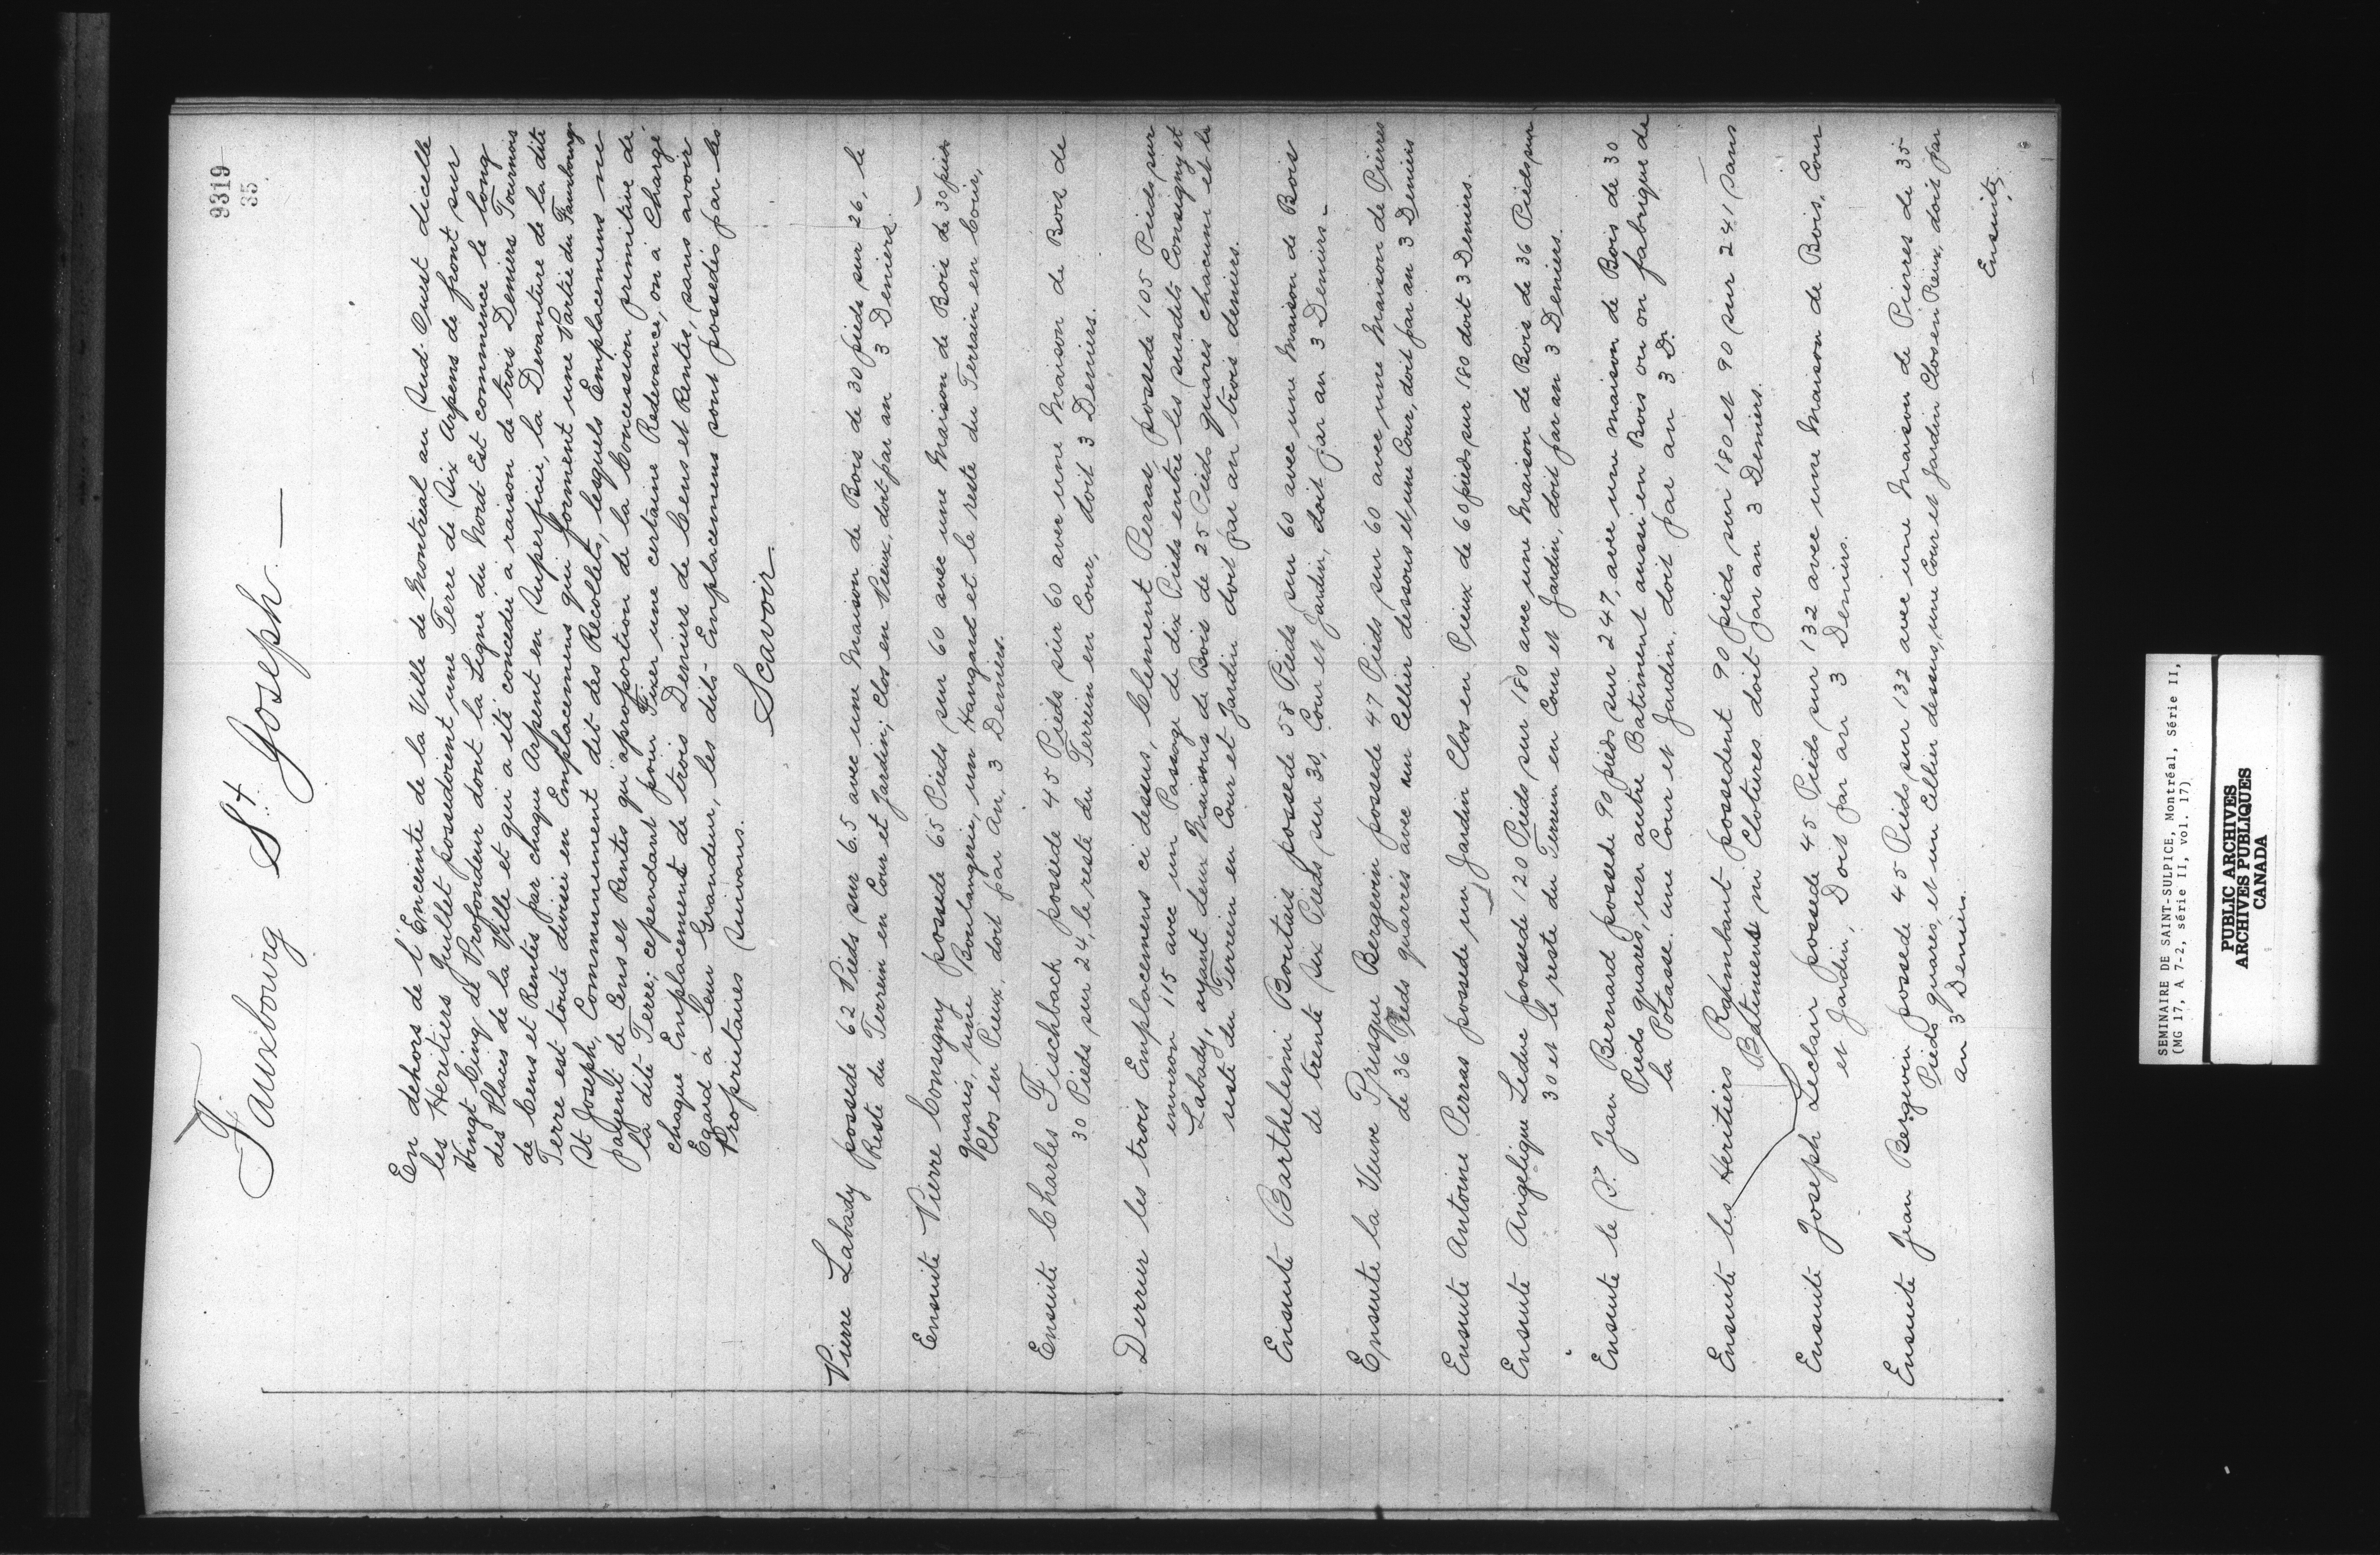 9319
35
Fauxbourg St Joseph.—
En dehors de l'Enceinte de la Ville de Montreal au Sud-Ouest d'icelle
les Heritiers Guillet possedoient une Terre de Six Arpens de front sur
Vingt Cinq de Profondeur dont la Ligne du Nord-Est commence le long
des Places de la Ville et qui a été concedée à raison de trois Deniers Tournois
de Cens et Rentes par chaque Arpent en Superficie, la Devanture de la dite
Terre est toute divisée en Emplacemens qui forment une Partie du Fauxbourg
St Joseph, Communement dit des Recollets, lesquels Emplacemens ne
payent de Cens et Rentes qu'aproportion de la Concession primitive de
la dite Terre; cependant pour Fixer une certaine Redevance, on a Chargé
chaque Emplacement de trois Deniers de Cens et Rentes, sans avoir
Egard à leur Grandeur, les dits Emplacemens sont possedés par les
Proprietaires suivans.
Scavoir
Pierre Labady possede 62 Pieds sur 65 avec une Maison de Bois de 30 pieds sur 26, le
Reste du Terrein en Cour et Jardin; Clos en Pieux, doit par an 3 Deniers.
Ensuite Pierre Consigny possede 65 Pieds sur 60 avec une Maison de Bois de 30 pieds
quarés, une Boulangerie, un Hangard et le reste du Terrain en Cour,
Clos en Pieux, doit par An, 3 Deniers.
Ensuite Charles Fischback possede 45 Pieds sur 60 avec une Maison de Bois de
30 Pieds sur 24, le reste du Terrein en Cour, doit 3 Deniers.
Derrier les trois Emplacemens ci dessus, Clement Perras possede 105 Pieds sur
environ 115 avec un Passage de dix Pieds entre les susdits Consigny et
Labady, ayant deux Maisons de Bois de 25 Pieds quarés chacune et le
reste du Terrein en Cour et Jardin doit par an trois deniers.
Ensuite Barthelemi Boutais possede 58 Pieds sur 60 avec une Maison de Bois
de trente Six Pieds sur 30, Cour et Jardin, doit par an 3 Deniers -
Ensuite la Veuve Prisque Bergevin possede 47 Pieds sur 60 avec une Maison de Pierres
de 36 Pieds quarrés avec un Cellier dessous et une Cour, doit par an 3 Deniers
Ensuite Antoine Perras possede un Jardin Clos en Pieux de 60 pieds sur 180 doit 3 Deniers.
Ensuite Angelique Leduc possede 120 Pieds sur 180 avec une Maison de Bois de 36 Pieds sur
30 et le reste du Terrein en Cour et Jardin, doit par an 3 Deniers.
Ensuite le Sr. Jean Bernard possede 90 pieds sur 247, avec une maison de Bois de 30
Pieds quarés, un autre Batiment aussi en Bois ou on fabrique de
la Potasse. une Cour et Jardin. doit par an 3 D.
Ensuite les Heritiers Raymbant possedent 90 pieds sur 180 et 90 sur 241 sans
Batimens ni Clotures doit par an 3 Deniers.
Ensuite Joseph Leclair possede 45 Pieds sur 132 avec une Maison de Bois, Cour
et Jardin, Doit par an 3 Deniers.
Ensuite Jean Bergevin possede 45 Pieds sur 132 avec une Maison de Pierres de 35
Pieds quarés, et un Cellier dessous, une Cour et Jardin Clos en Pieux, doit par
an 3 Deniers.
Ensuite,
SEMINAIRE DE SAINT-SULPICE, Montréal, Série II,
(MG 17, A 7-2, série II, vol. 17)
PUBLIC ARCHIVES
ARCHIVES PUBLIQUES
CANADA